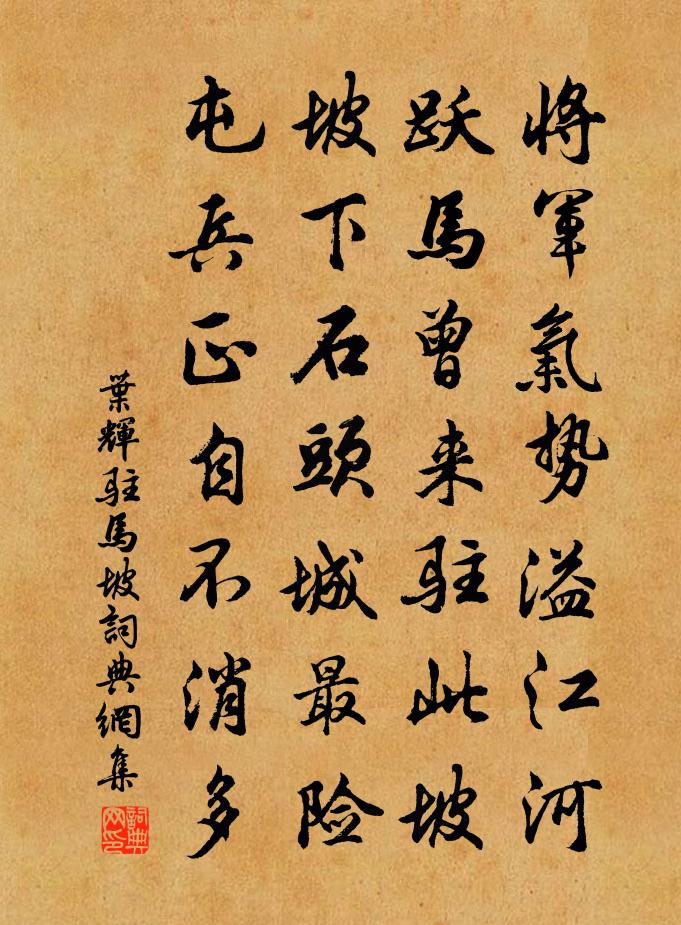 将軍氣势溢江河
跃馬曾来驻此坡
坡下石頭城最险
屯兵正自不消多
葉輝駐馬坡詞典網集
詞典网印